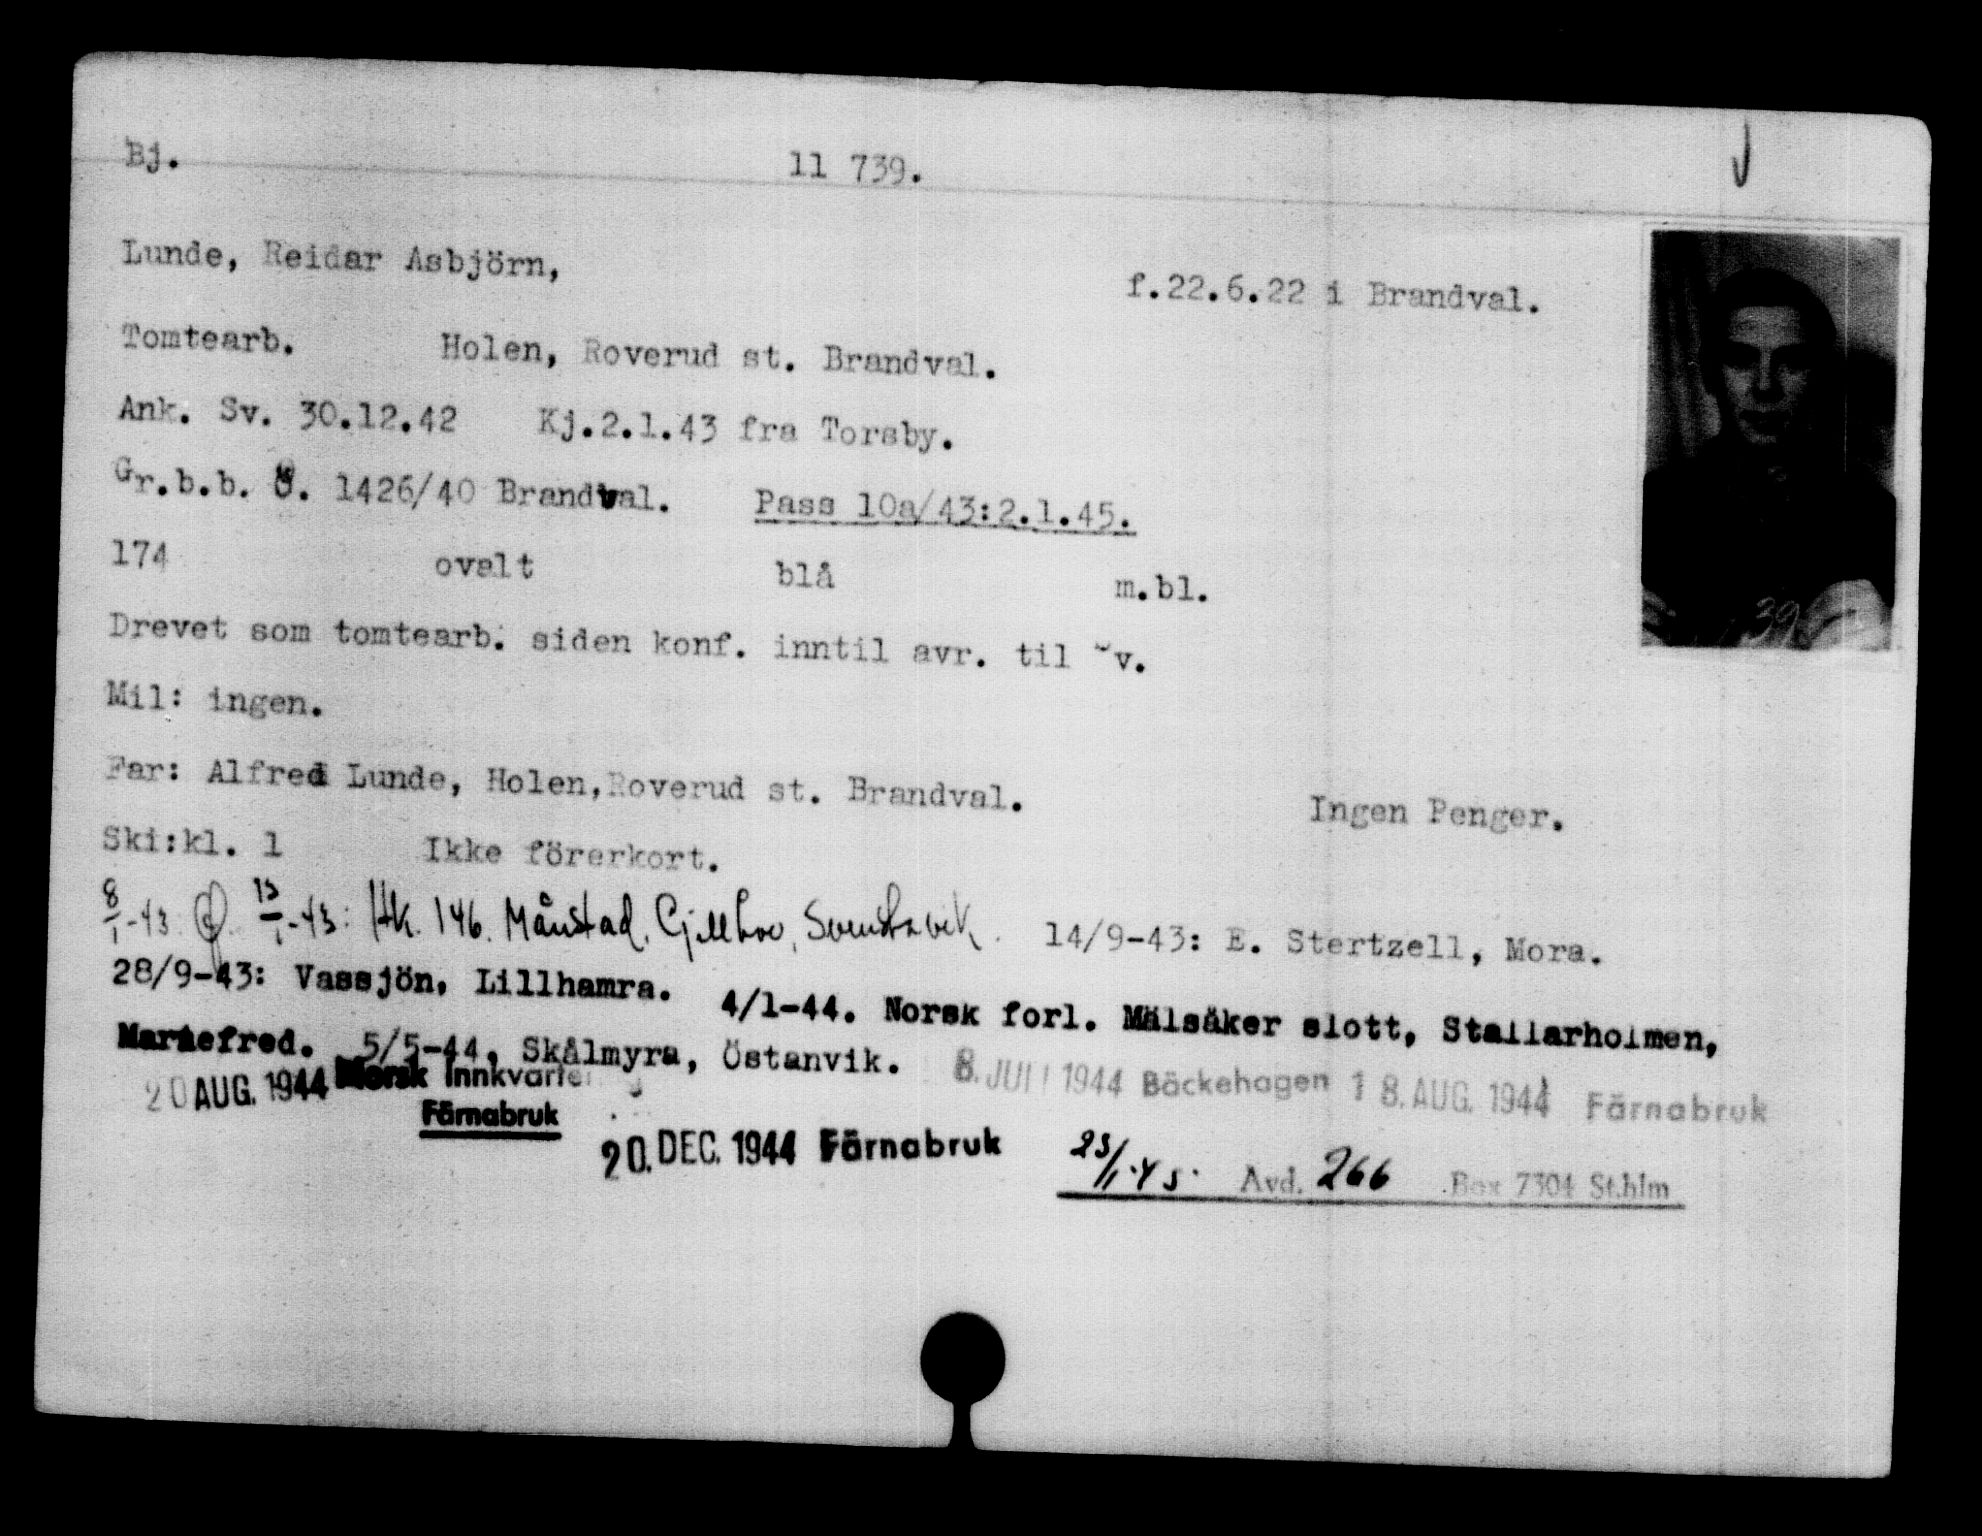 Bj. 11 739.
Lunde, Reidar Asbjörn, f.22.6.22 i Brandval.
Tomtearb. Holen, Roverud st. Brandval.
Ank. Sv. 30.12.42 Kj.2.1.43 fra Torsby.
Gr.b.b. 8. 1426/40 Brandval. Pass 10a/43:2.1.45.
174 ovalt blå m.bl.
Drevet som tomtearb. siden konf. inntil avr. til Sv.
Mil: ingen.
Far: Alfred Lunde, Holen,Roverud st. Brandval. Ingen Penger.
Ski:kl. 1 Ikke förerkort.
8/1-43 Ö. 15/1-43: Hk. 146. Månstad, Gillhov, Svenstavik. 14/9-43: E. Stertzell, Mora.
28/9-43: Vassjön, Lillhamra. 4/1-44. Norsk forl. Mälsåker slott, Stallarholmen,
Mariefred. 5/5-44, Skålmyra, Östanvik. 8. JULI 1944 Bäckehagen 18. AUG. 1944 Färnabruk
20 AUG. 1944 Norsk Innkvarter
Färnabruk
20. DEC. 1944 Färnabruk 23/1-45. Avd. 266 Box 7304 Sthlm
39